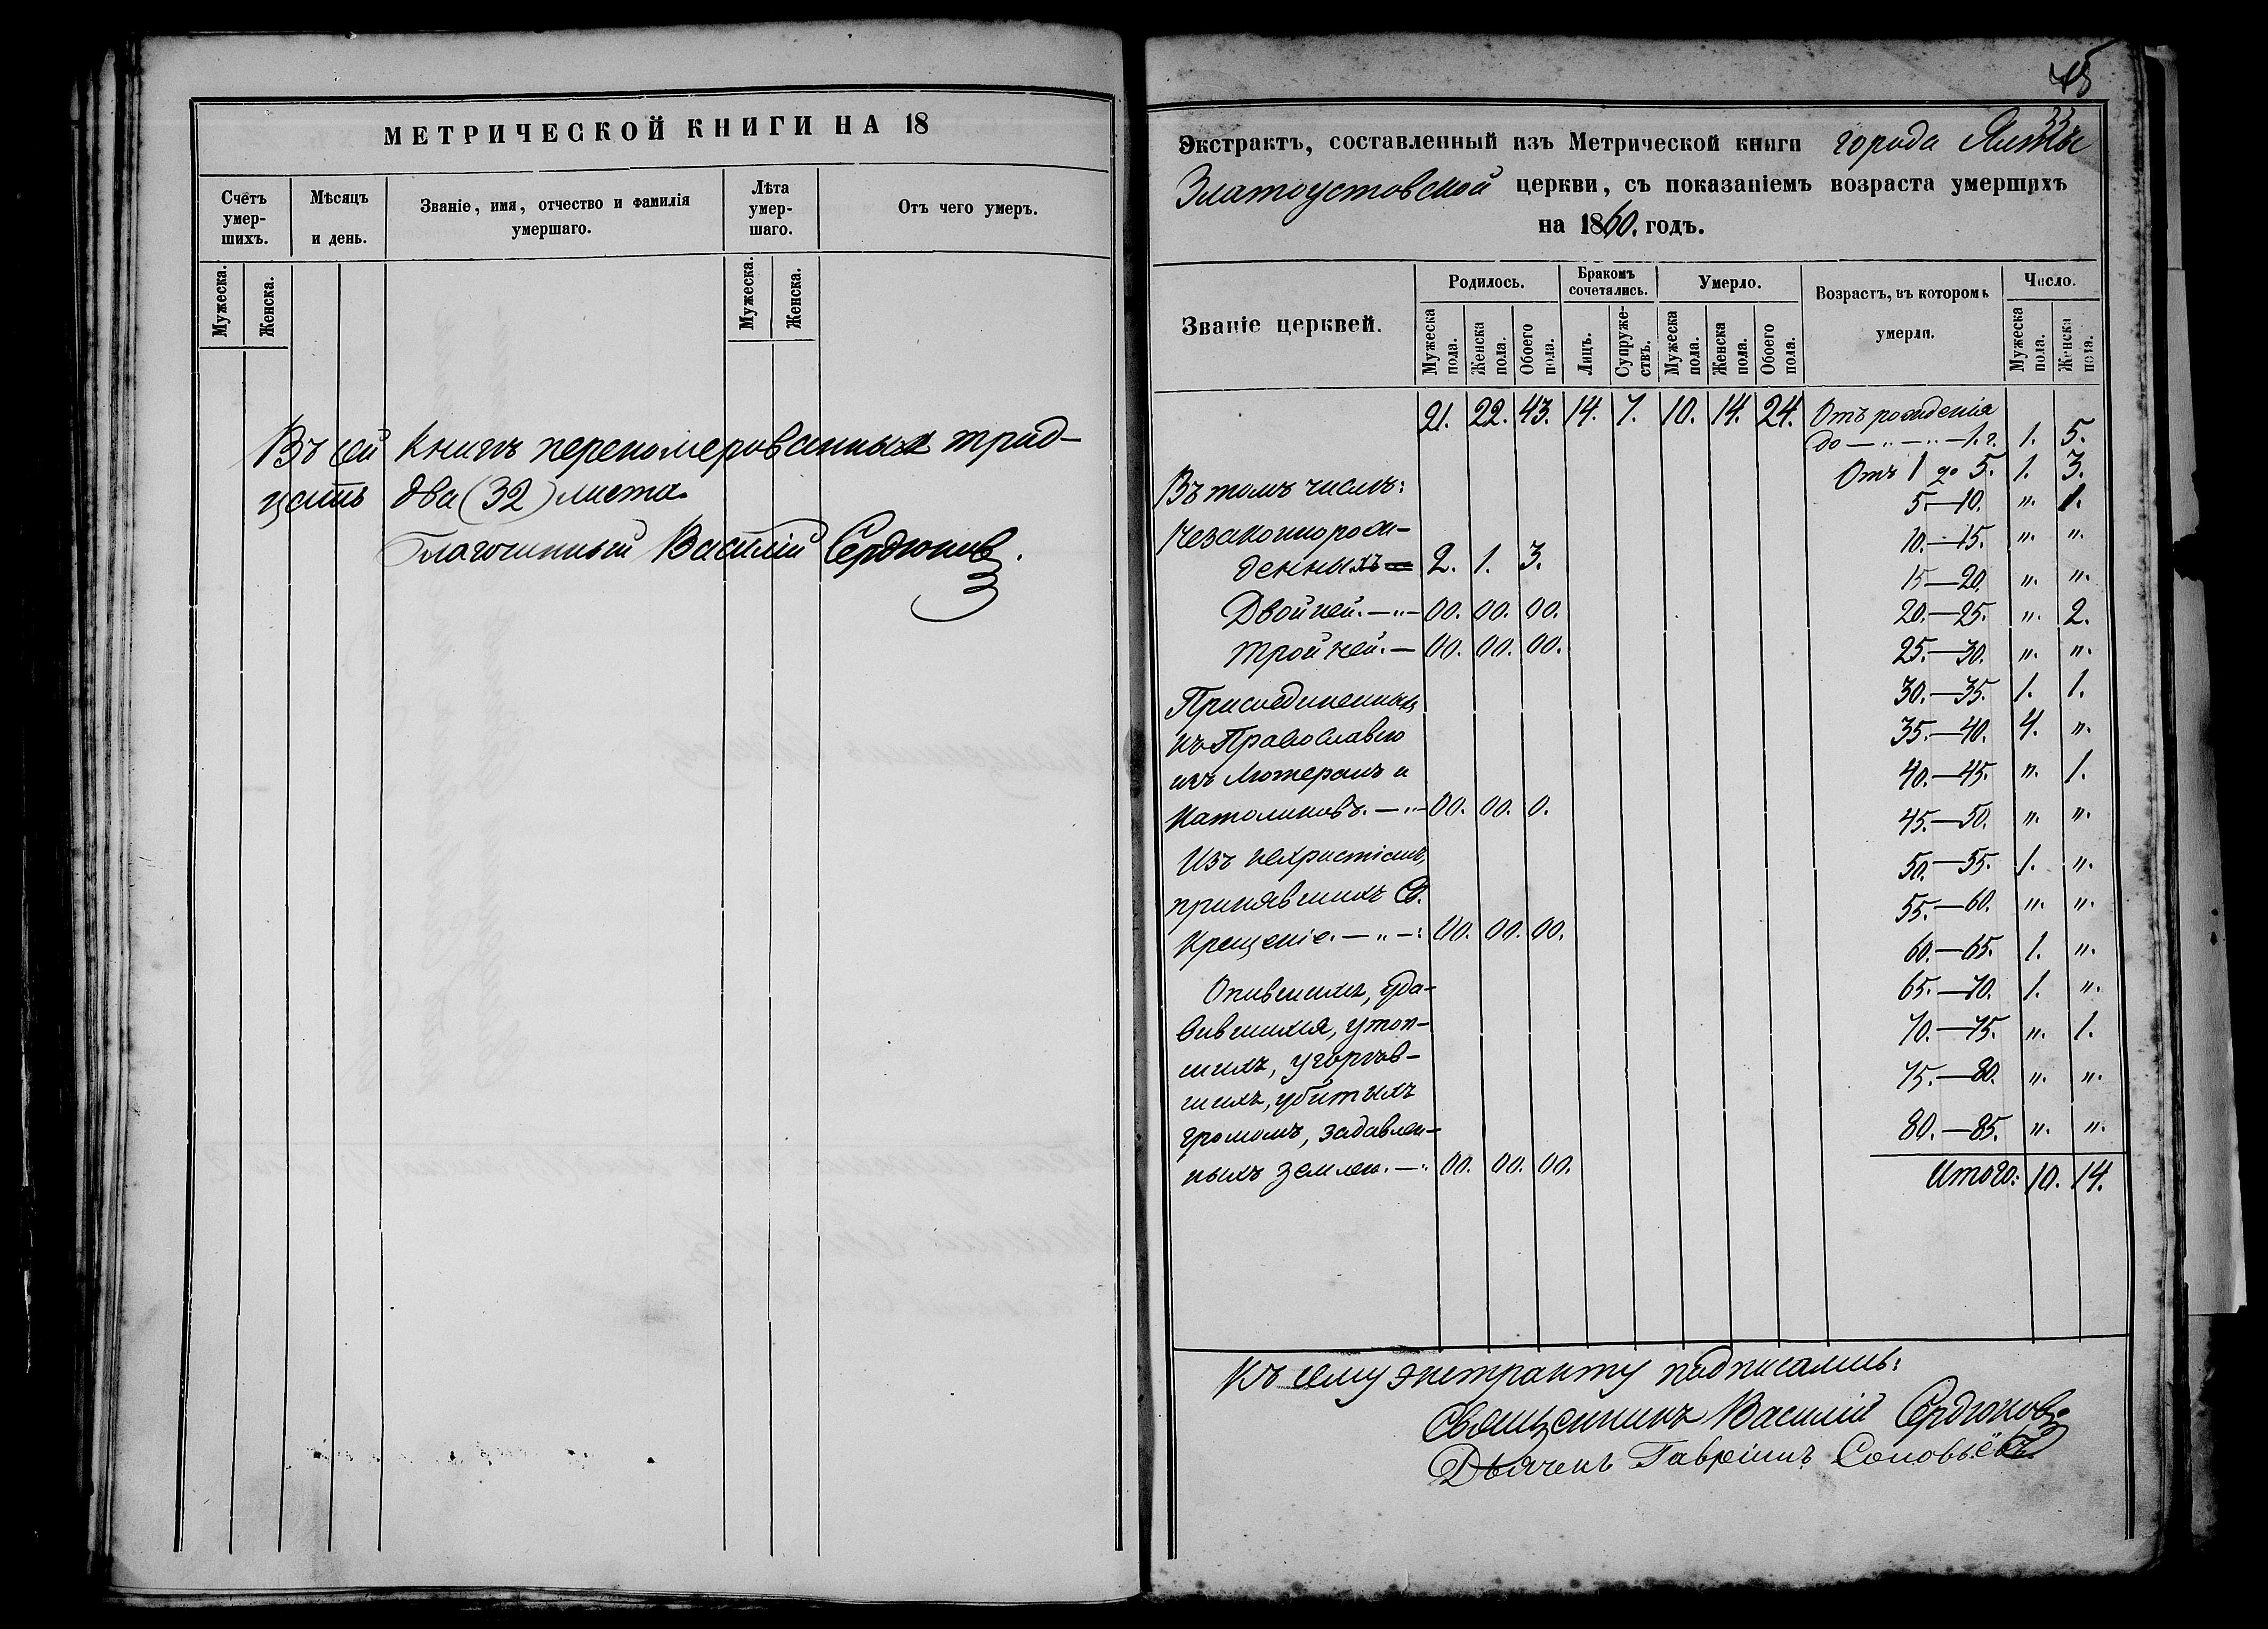 МЕТРИЧЕСКОЙ КНИГИ НА 18
Счетъ умер-шихъ.
Мѣсяцъ и день.
Званіе, имя, отчество и фамилія умершаго.
Лѣта умер-шаго.
Отъ чего умеръ.
Мужеска. Женска.
Мужеска. Женска.
Въ сей книгѣ перенумерованныхъ трид-
цать два (32) листа.
Благочинный Василій Сердюковъ.
45
33
Экстрактъ, составленный изъ Метрической книги города Ялты
Златоустовской церкви, съ показаніемъ возраста умершихъ
на 1860. годъ.
Званіе церквей.
Родилось.
Бракомъ сочетались.
Умерло.
Возрастъ, въ которомъ умерли.
Число.
Мужеска пола. Женска пола. Обоего пола. Лицъ. Супруже-ствъ. Мужеска пола. Женска пола. Обоего пола. Мужеска пола. Женска пола.
21. 22. 43. 14. 7. 10. 14. 24. Отъ рожденія
до — „ — „ — 1. г. 1. 5.
Отъ 1 до 5. 1. 3.
Въ томъ числѣ:
5.—10. „. 1.
Незаконнорож-
10.—15. „. „.
денныхъ — 2. 1. 3.
15—20. „. „.
Двойней. — „ — 00. 00. 00.
20.—25. „. 2.
Тройней. — 00. 00. 00.
25.—30. „. „.
30.—35. 1. 1.
Присоединенныхъ
35.—40. 4. „.
къ Православію
40.—45. „. 1.
изъ Лютеранъ и
Католиковъ. — „ — 00. 00. 0.
45.—50. „. „.
Изъ нехристіанъ,
50.—55. 1. „.
принявшихъ Св.
55.—60. „. „.
Крещеніе. — „ — 00. 00. 00.
60.—65. 1. „.
Опившихъ, уда-
65.—70. 1. „.
вившихся, утоп-
70.—75. „. 1.
шихъ, угорѣв-
75.—80. „. „.
шихъ, убитыхъ
громомъ, задавлен-
80.—85. „. „.
ныхъ землею. — „ 00. 00. 00.
Итого: 10. 14.
Къ сему экстракту подписались:
Священникъ Василій Сердюковъ
Дьячекъ Гавріилъ Соловьёвъ.